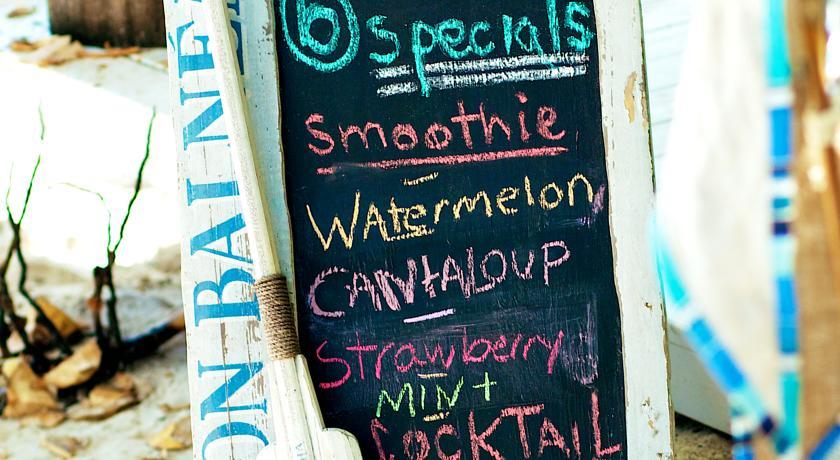 6 specials
Smoothie
Watermelon
CANtALOUP
Strawberry
MINt
COCKTAIL
ON BALNÉ